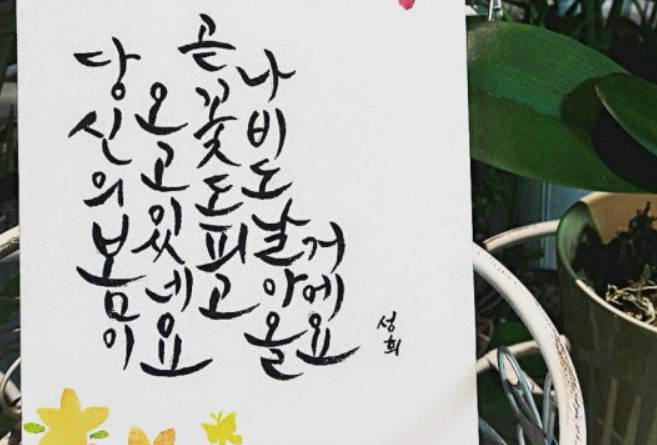 당신의 봄이
오고 있네요
곧 꽃도 피고
나비도 날아올
거예요
성희